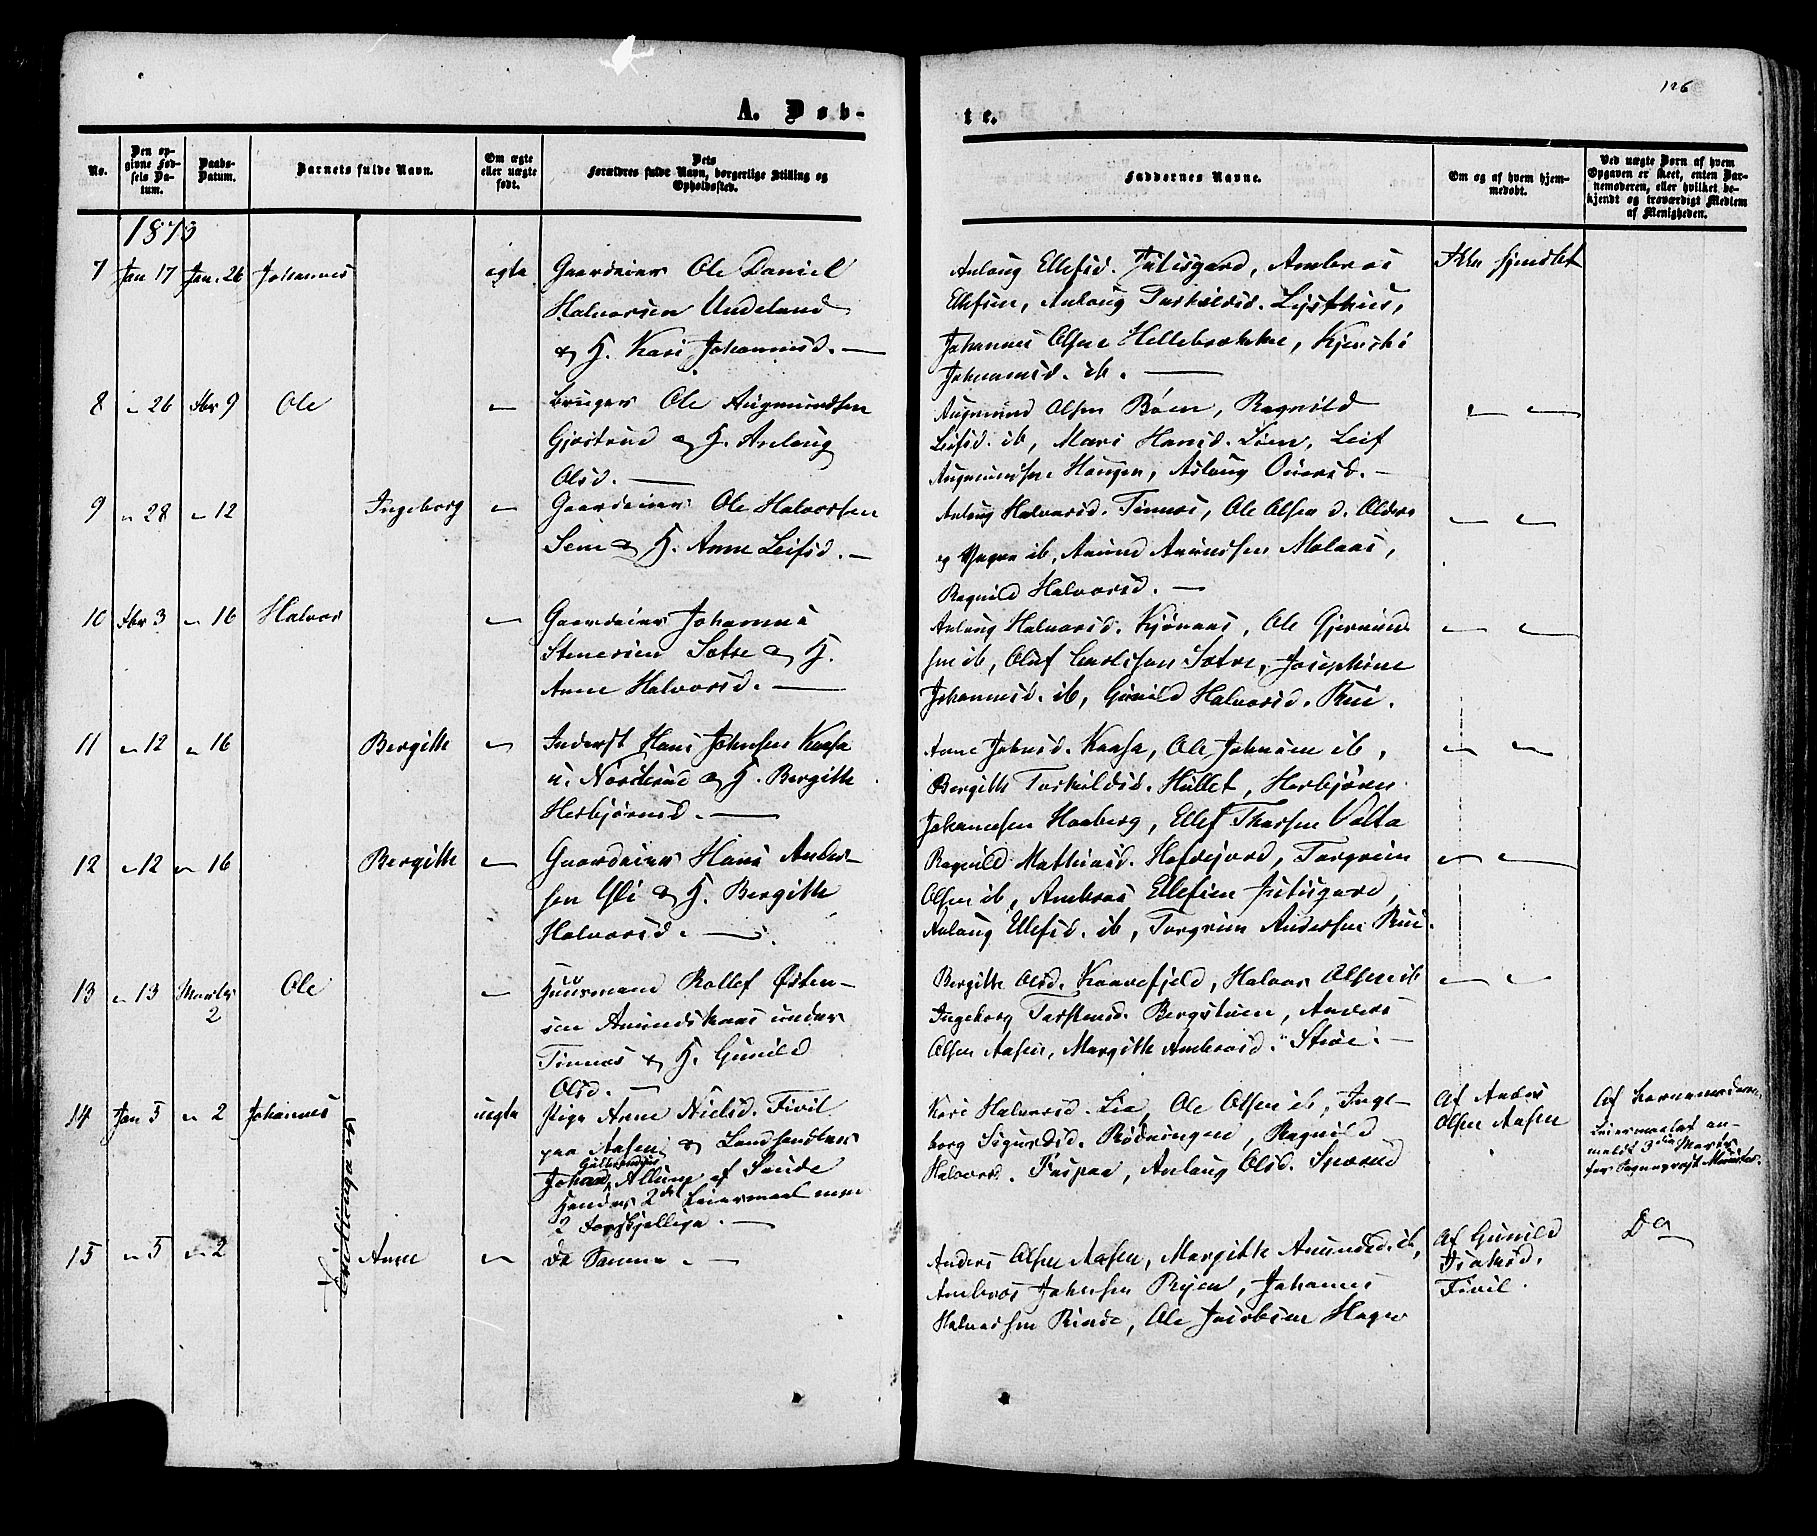 126
A. Døb-
te.
No.
Den op-
givne Fød-
sels Da-
tum.
Daabs-
Datum.
Barnets fulde Navn.
Om ægte
eller uægte
født.
Dets
Forældres fulde Navn, borgerlige Stilling og
Opholdssted.
Faddernes Navne.
Om og af hvem hjem-
medøbt.
Ved uægte Børn af hvem
Opgaven er skeet, enten Bar-
nemoderen, eller hvilket be-
kjendt og troværdigt Medlem
af Menigheden.
1873
7 Jan 17 Jan. 26 Johannes ægte Gaardeier Ole Daniel
Halvorsen Undeland
& H. Kari Johannesd. —
Aslaug Ellefsd. Ambros
Ellefsen, Aslaug Torkildsd. Lysthus,
Johannes Olsen Hellebrække,
Johannesd. ib. —
Ikke hjemdøbt
8 " 26 Fbr 9 Ole " Bruger Ole Augmundsen
Gjestrud & H. Aslaug
Olsd. —
Augmund Olsen Bøen, Ragnild
Leifsd. ib, Mari Hansd. Leif
Augmundsen Haugen, Aslaug —
9 " 28 " 12 Ingeborg " Gaardeier Ole Halvorsen
Sem & H. Anne Leifsd. —
Aslaug Halvorsd. Tinnes, Ole Olsen d. Ældre
og Yngre ib, Amund Amundsen Moland,
Ragnild Halvorsd. —
10 Fbr 3 " 16 Halvor " Gaardeier Johannes
Stenersen Sætre & H.
Anne Halvorsd. —
Aslaug Halvorsd. Kjønaas, Ole Gjermund-
sen ib, Oluf Sætre, Josephine
Johannesd. ib, Gunild Halvorsd. Rui.
11 " 12 " 16 Bergitte " Inderst Hans Johnsen Kaasa
u. Nordsrud & H. Bergitte
Herbjørnsd. —
Anne Johnsd. Kaasa, Ole Johnsen ib,
Bergitte Torkildsd. Hullet, Herbjørn
Johannesen Haaberg, Ellef Thorsen Valta
12 " 12 " 16 Bergitte " Gaardeier Hans Ander-
sen Yli & H. Bergitte
Halvorsd. —
Ragnild Mathiasd. Torgrim
Olsen ib, Ambros Ellefsen
Aslaug Ellefsd. ib, Torgrim Andersen Rui.
13 " 13 Marts
2 Ole " Huusmand Rollef Østen-
sen Amundskaas under
Tinnes & H. Gunild
Olsd. —
Bergitte Olsd. Halvor Olsen ib
Ingeborg Torstensd. Bergstuen, Anders
Olsen Aasen, Margitte Ambrosd. —
14 Jan 5 " 2 Johannes uægte Pige Anne Nielsd. Tivil
paa Aasen & Landhandler
Johan Gulbrandsen Allum af Saude
Hendes 2det Leiermaal med
2 forskjellige. —
Kari Halvorsd. Lia, Ole Olsen ib, Inge-
borg Sigurdsd. Rødningen, Ragnild
Halvorsd. Aslaug Olsd.
Af Anders
Olsen Aasen
Af Barnemoderen,
Leiermaalet an-
meldt 3die Marts
for Sognepræst
Tvillinger
15 " 5 " 2 Anne " De Samme. —
Anders Olsen Aasen, Margitte Amundsd. ib,
Ambros Johnsen Ryen, Johannes
Halvorsen Rinde, Ole Jacobsen Hagen
Af Gunild
Isaksd.
Tivil.
Do